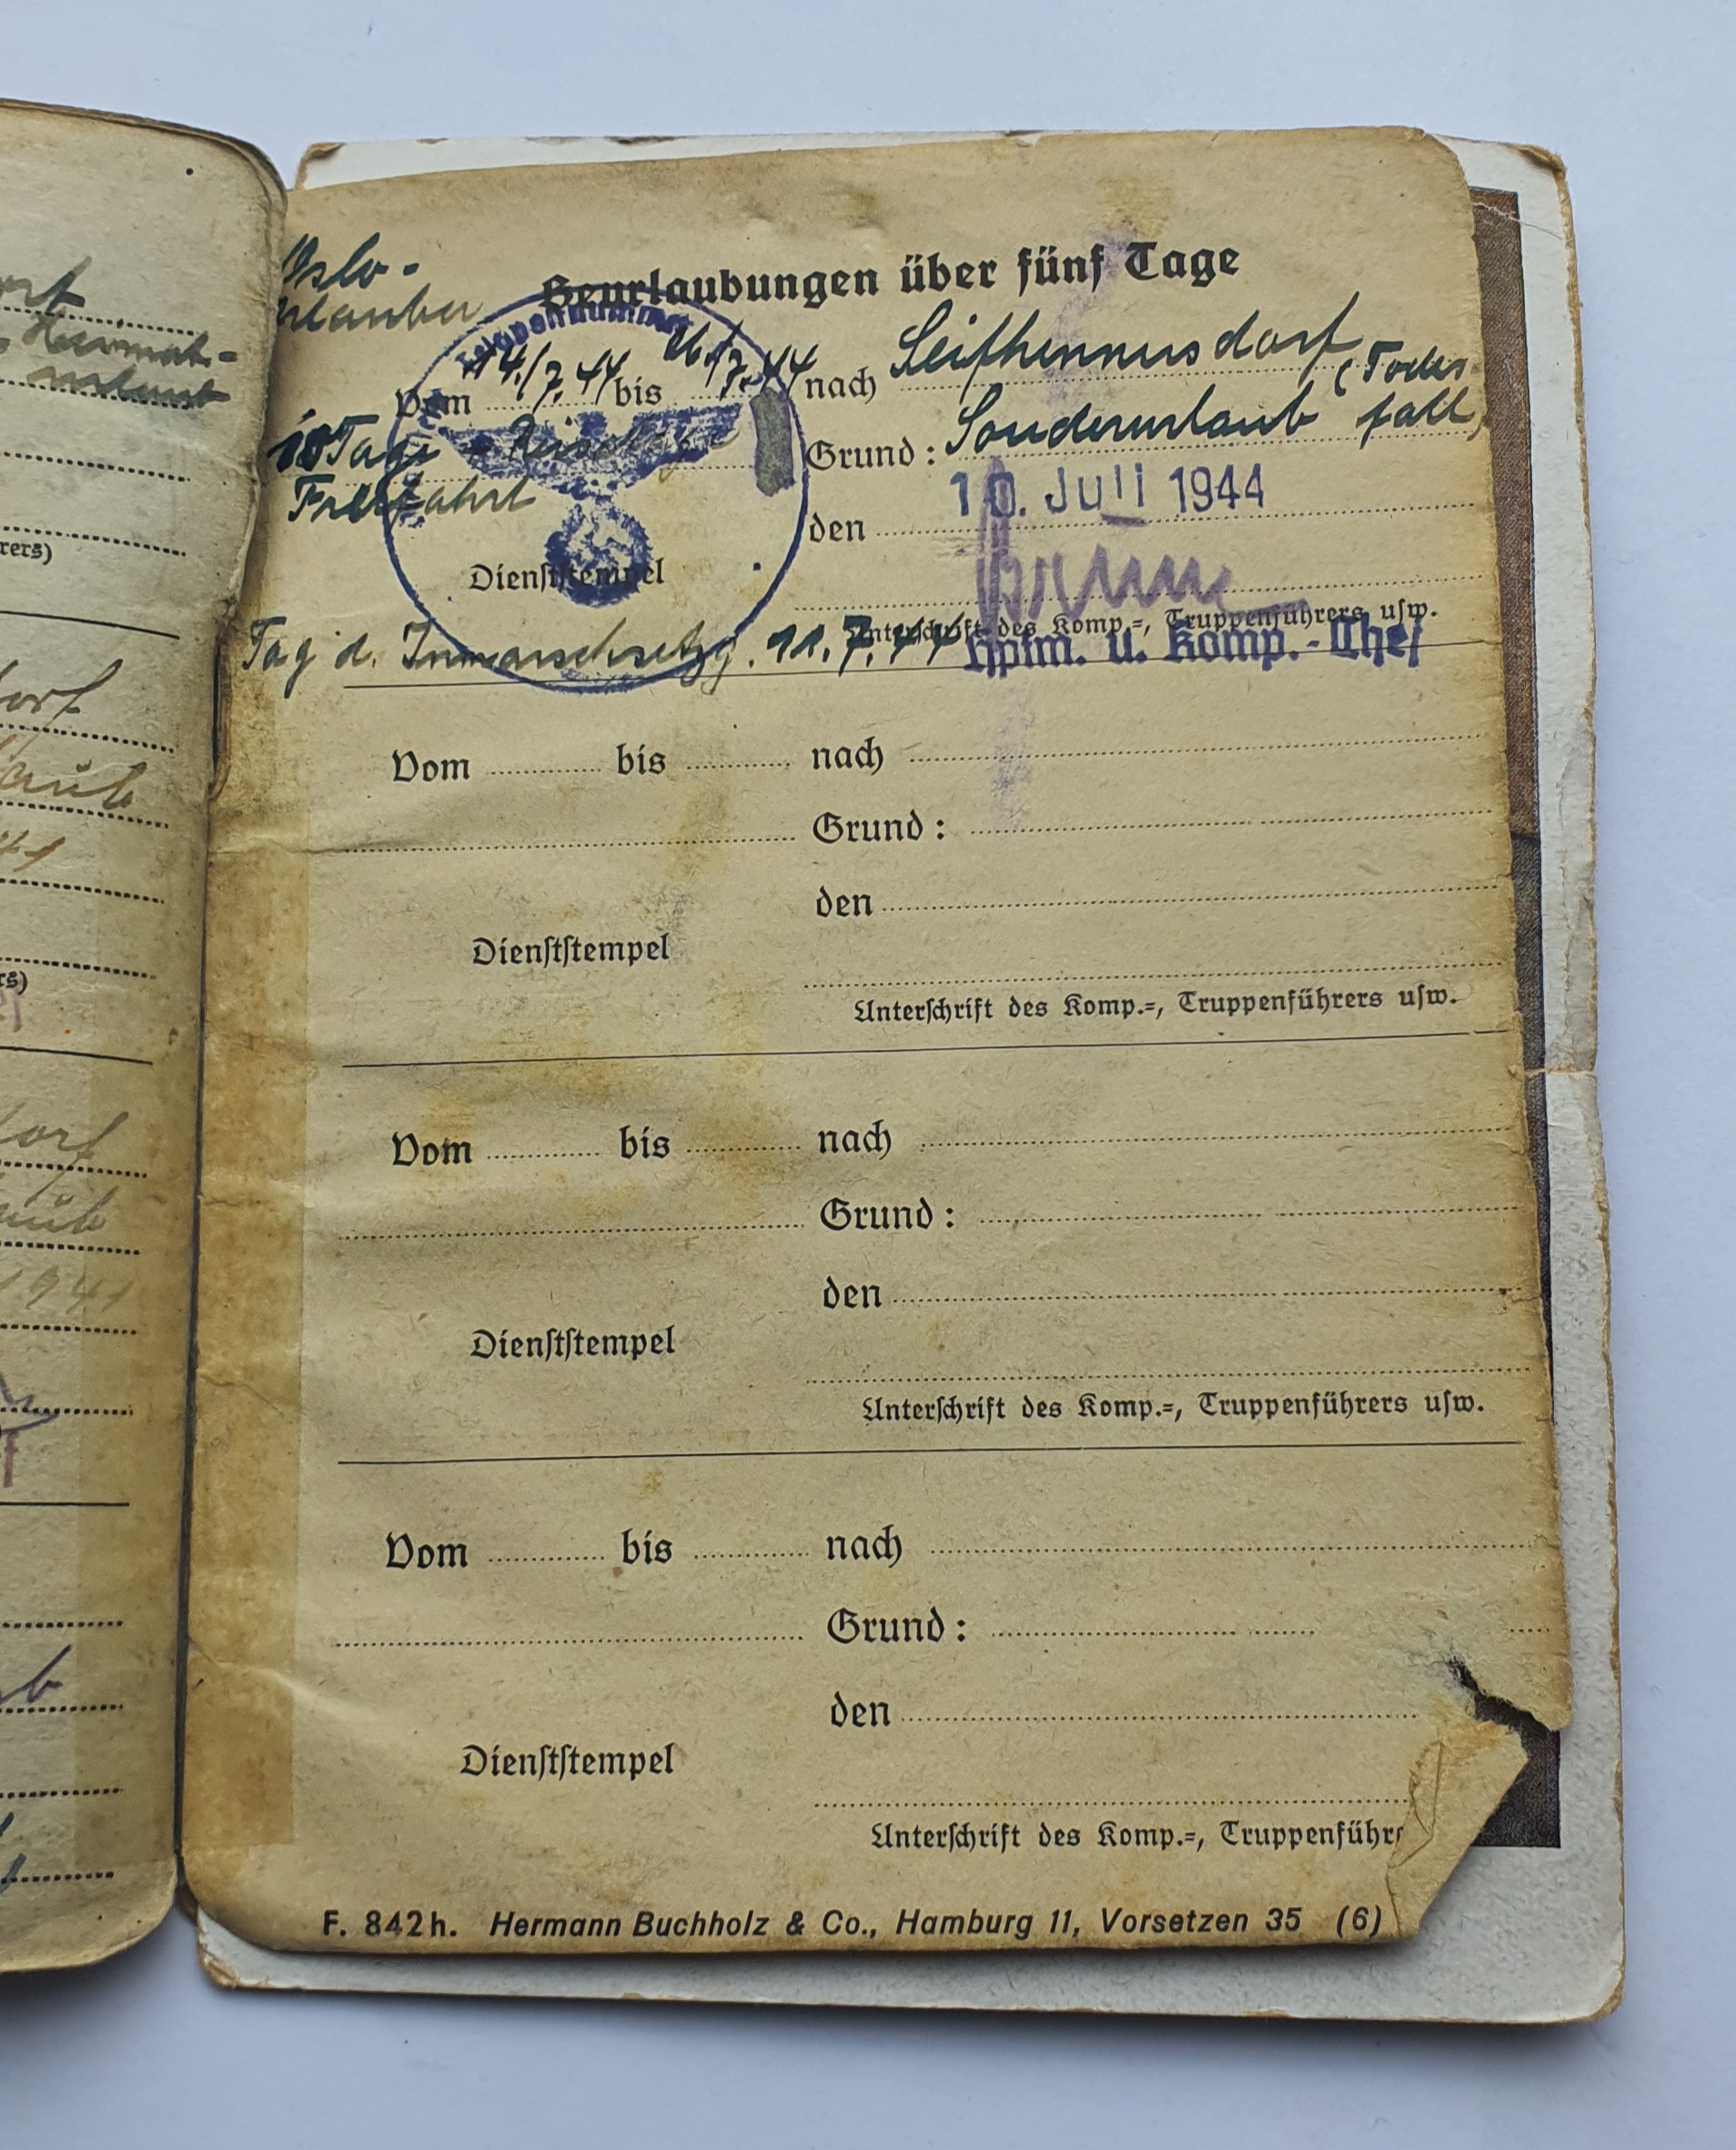 ort
Heimat-
urlaub
rers)
dorf
aub
41
rs)
dorf
aub
1941
f
b
Oslo-
urlauber
Beurlaubungen über fünf Tage
Feldpostnummer
Vom 14./7.44 bis 26./7.44 nach Seifhennersdorf
10 Tage + Reisetage Grund: Sonderurlaub (Todes-
fall)
Freifahrt
den 10. Juli 1944
Dienststempel
Unterschrift des Komp.=, Truppenführers usw.
Tag d. Inmarschsetzg. 11.7.44 Hptm. u. Komp.-Chef
Vom bis nach
Grund:
den
Dienststempel
Unterschrift des Komp.=, Truppenführers usw.
Vom bis nach
Grund:
den
Dienststempel
Unterschrift des Komp.=, Truppenführers usw.
Vom bis nach
Grund:
den
Dienststempel
Unterschrift des Komp.=, Truppenführe
F. 842h. Hermann Buchholz & Co., Hamburg 11, Vorsetzen 35 (6)